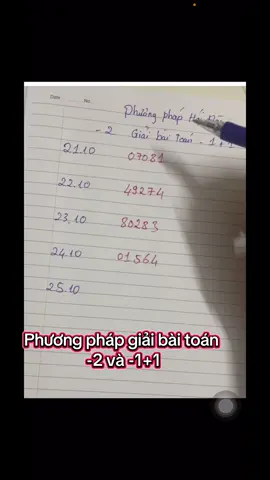 Date: No.
Phương pháp
-2 Giải bài toán -1+1
21.10 07081
22.10 49274
23.10 80283
24.10 01564
25.10
Phương pháp giải bài toán
-2 và -1+1